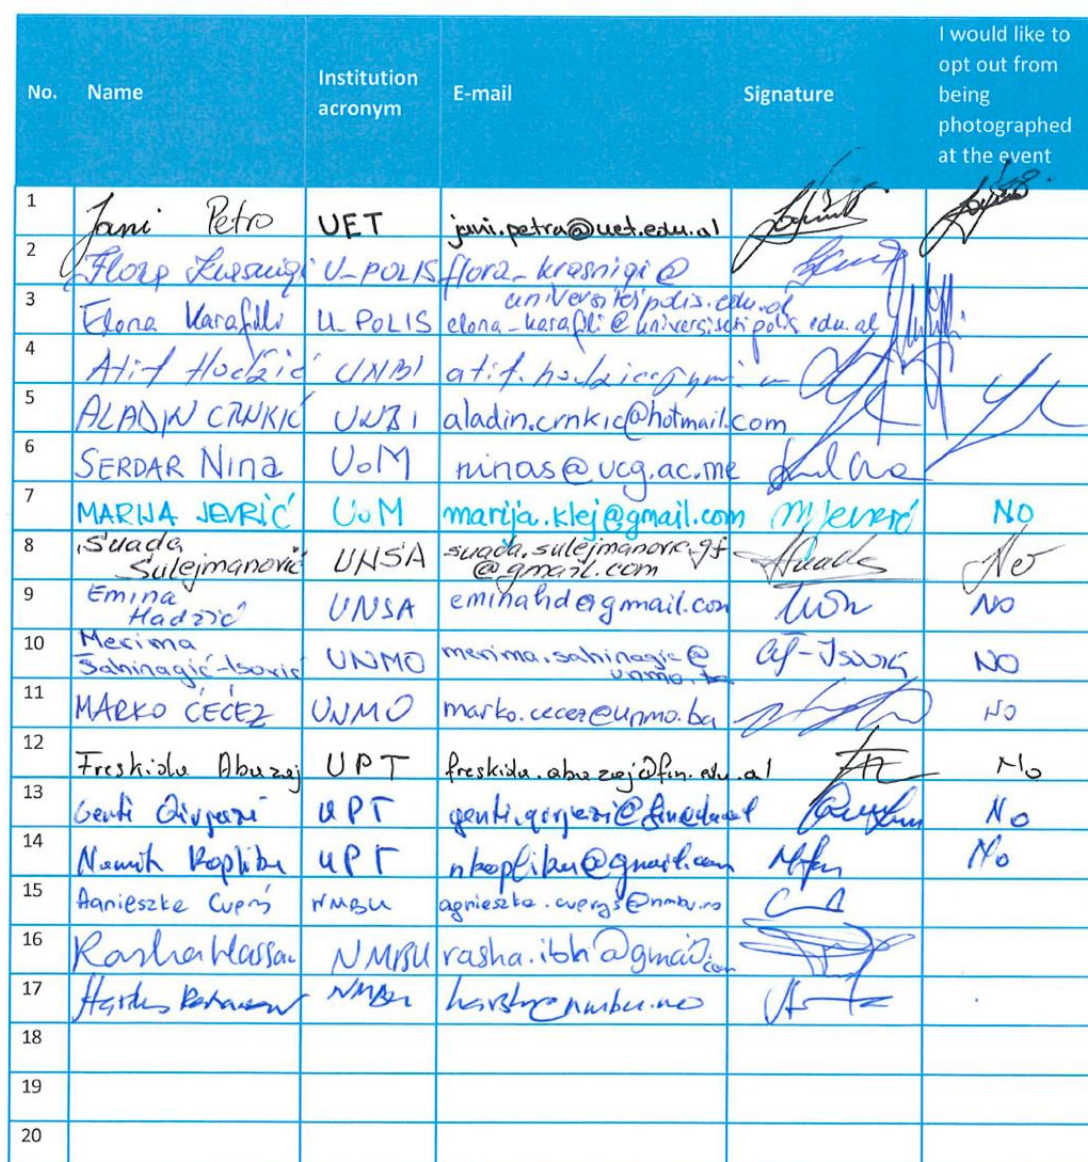 No. Name Institution acronym E-mail Signature I would like to opt out from being photographed at the event
1 Jani Petro UET jani.petra@uet.edu.al
2 Flora U_POLIS flora_krasniqi@
universitetipolis.edu.al
3 Elona Karafili U_POLIS elona_karafili@universitetipolis.edu.al
4 Atif Hodžić UNBI
5 ALADIN CRNKIĆ UNBI aladin.crnkic@hotmail.com
6 SERDAR Nina UoM ninas@ucg.ac.me
7 MARIJA JEVRIĆ UoM marija.klej@gmail.com MJevrić NO
8 Suada Sulejmanović UNSA suada.sulejmanovic.gf
@gmail.com No
9 Emina Hadžić UNSA eminahd@gmail.com NO
10 Merima Šahinagić-Isović UNMO merima.sahinagic@
unmo.ba NO
11 MARKO ĆEĆEZ UNMO marko.cecez@unmo.ba NO
12 Freskida Abazaj UPT freskida.abazaj@fin.edu.al No
13 Genti Qirjazi UPT genti.qirjazi@fin.edu.al No
14 Namik Kopliku UPT nkopliku@gmail.com No
15 Agnieszka NMBU
16 Rasha Hassan NMBU rasha.ibh@gmail.com
17 NMBU
18
19
20